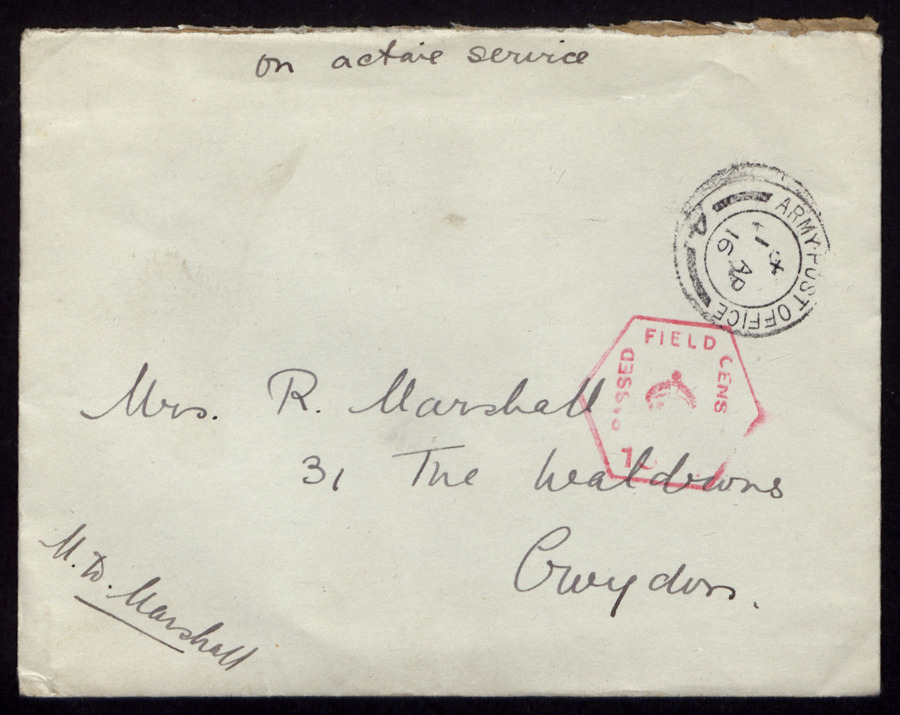 on active service
ARMY POST OFFICE
A
X
16 AP
PASSED FIELD CENS
1
Mrs. R. Marshall
31 The Waldrons
Croydon.
M. D. Marshall